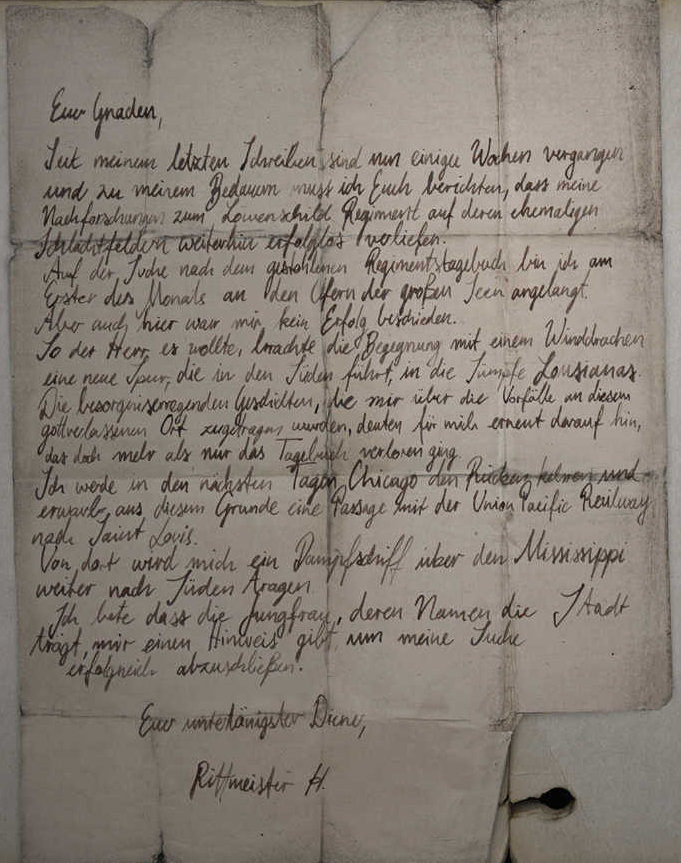 Euer Gnaden,
Seit meinem letzten Schreiben sind nun einige Wochen vergangen
und zu meinem Bedauern muss ich Euch berichten, dass meine
Nachforschungen zum Löwenschild Regiment auf deren ehemaligen
Schlachtfeldern weiterhin erfolglos verliefen.
Auf der Suche nach dem gestohlenen Regimentstagebuch bin ich am
Ersten des Monats an den Ufern der großen Seen angelangt.
Aber auch hier war mir kein Erfolg beschieden.
So der Herr es wollte, brachte die Begegnung mit einem Winddrachen
eine neue Spur, die in den Süden führt, in die Sümpfe Lousianas.
Die besorgniserregenden Geschichten, die mir über die Vorfälle an diesem
gottverlassenen Ort zugetragen wurden, deuten für mich erneut darauf hin,
das doch mehr als nur das Tagebuch verloren ging.
Ich werde in den nächsten Tagen Chicago den Rücken kehren und
erwarb aus diesem Grunde eine Passage mit der Union Pacific Railway
nach Saint Louis.
Von dort wird mich ein Dampfschiff über den Mississippi
weiter nach Süden tragen.
Ich bete dass die Jungfrau, deren Namen die Stadt
trägt, mir einen Hinweis gibt, um meine Suche
erfolgreich abzuschließen.
Euer untertänigster Diener,
Rittmeister H.